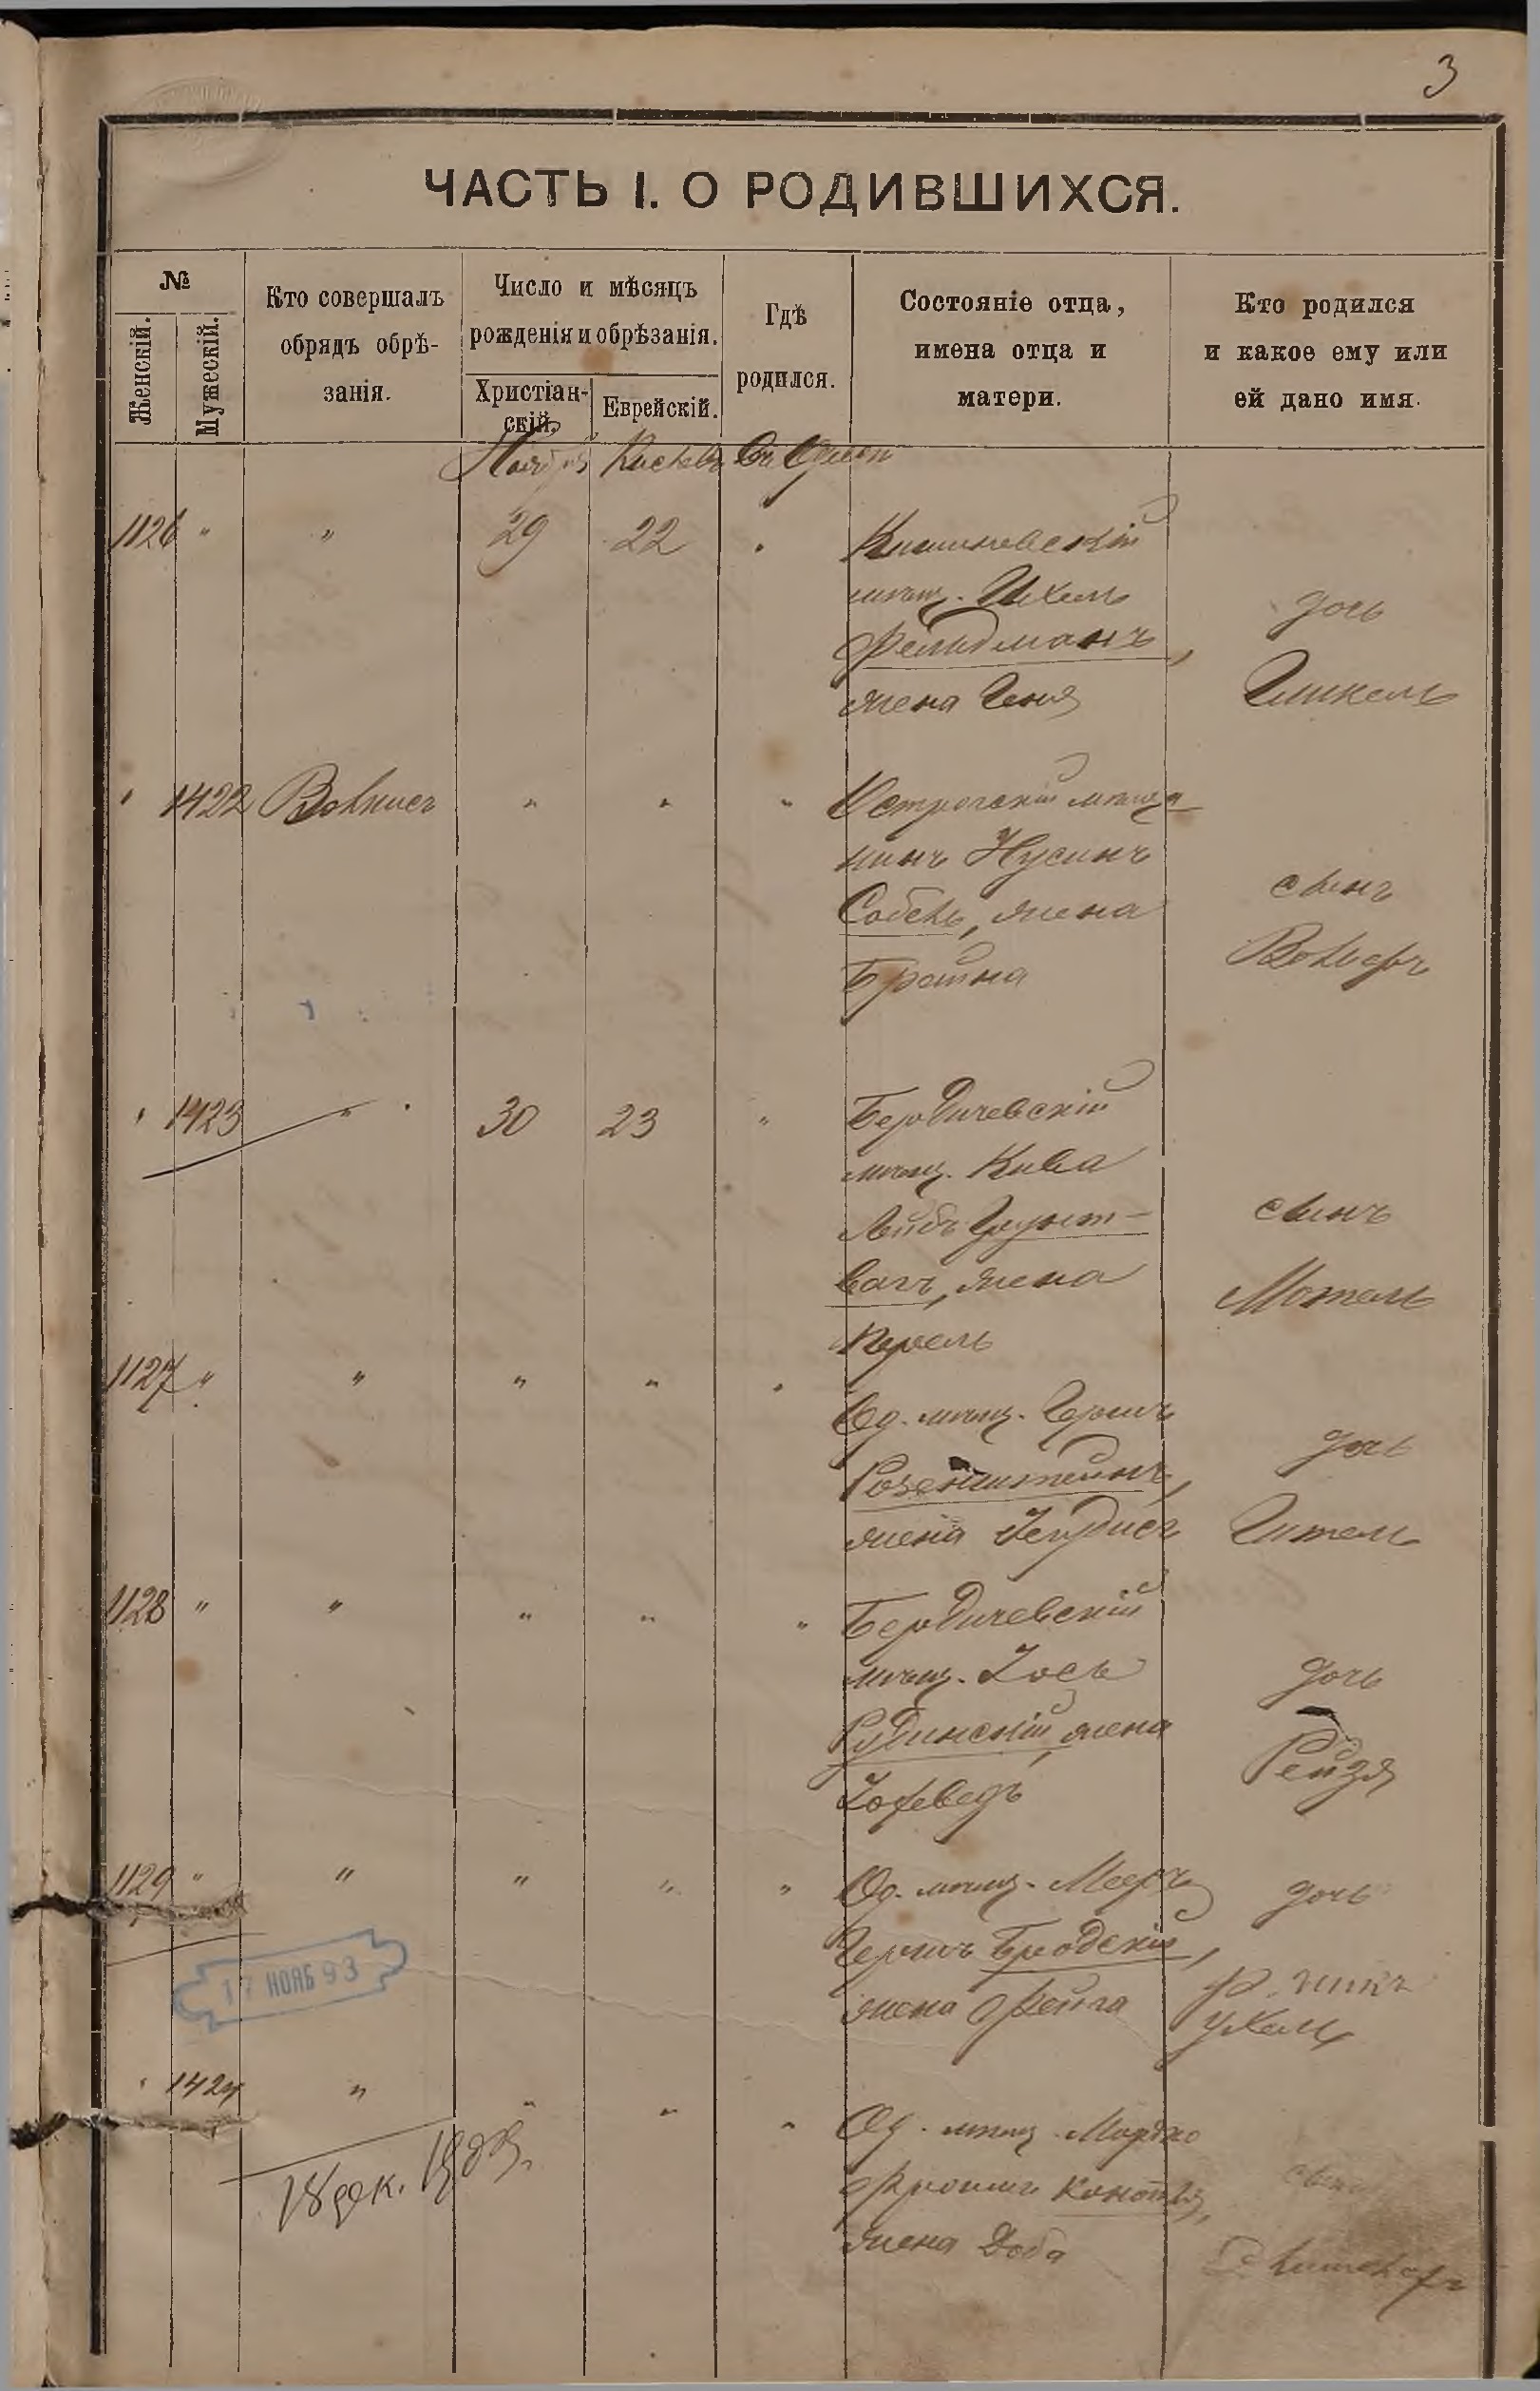 3
ЧАСТЬ I. О РОДИВШИХСЯ.
№
Женскій.
Мужескій.
Кто совершалъ
обрядъ обрѣ-
занія.
Число и мѣсяцъ
рожденія и обрѣзанія.
Христіан-
скій.
Еврейскій.
Гдѣ
родился.
Состояніе отца,
имена отца и
матери.
Кто родился
и какое ему или
ей дано имя.
Ноября Кислевъ Въ Одессѣ
1126 " " 29 22 "
Кишиневскій
мѣщ. Ихель
Фельдманъ,
жена Геня
дочь
Гликель
" 1422 " " "
Острогскій мѣща-
нинъ Нусинъ
Собель, жена
Брайна
сынъ
Вольфъ
" 1423 " 30 23 "
Бердичевскій
мѣщ. Кива
Лейбъ Грунт-
вагъ, жена
Перель
сынъ
Мотель
1127 " " " " "
Од. мѣщ. Гершъ
Розенштейнъ,
жена
дочь
Гитель
1128 " " " " "
Бердичевскій
мѣщ. Іось
Рудинскій, жена
Іохеведъ
дочь
Рейзя
1129 " " " " "
Од. мѣщ. Мееръ
Гершъ Бродскій,
жена Фейга
дочь
Рухель
17 НОЯБ 93
" 1424 " " " "
Од. мѣщ. Мордко
Фроимъ
жена Доба
сынъ
18 дек.